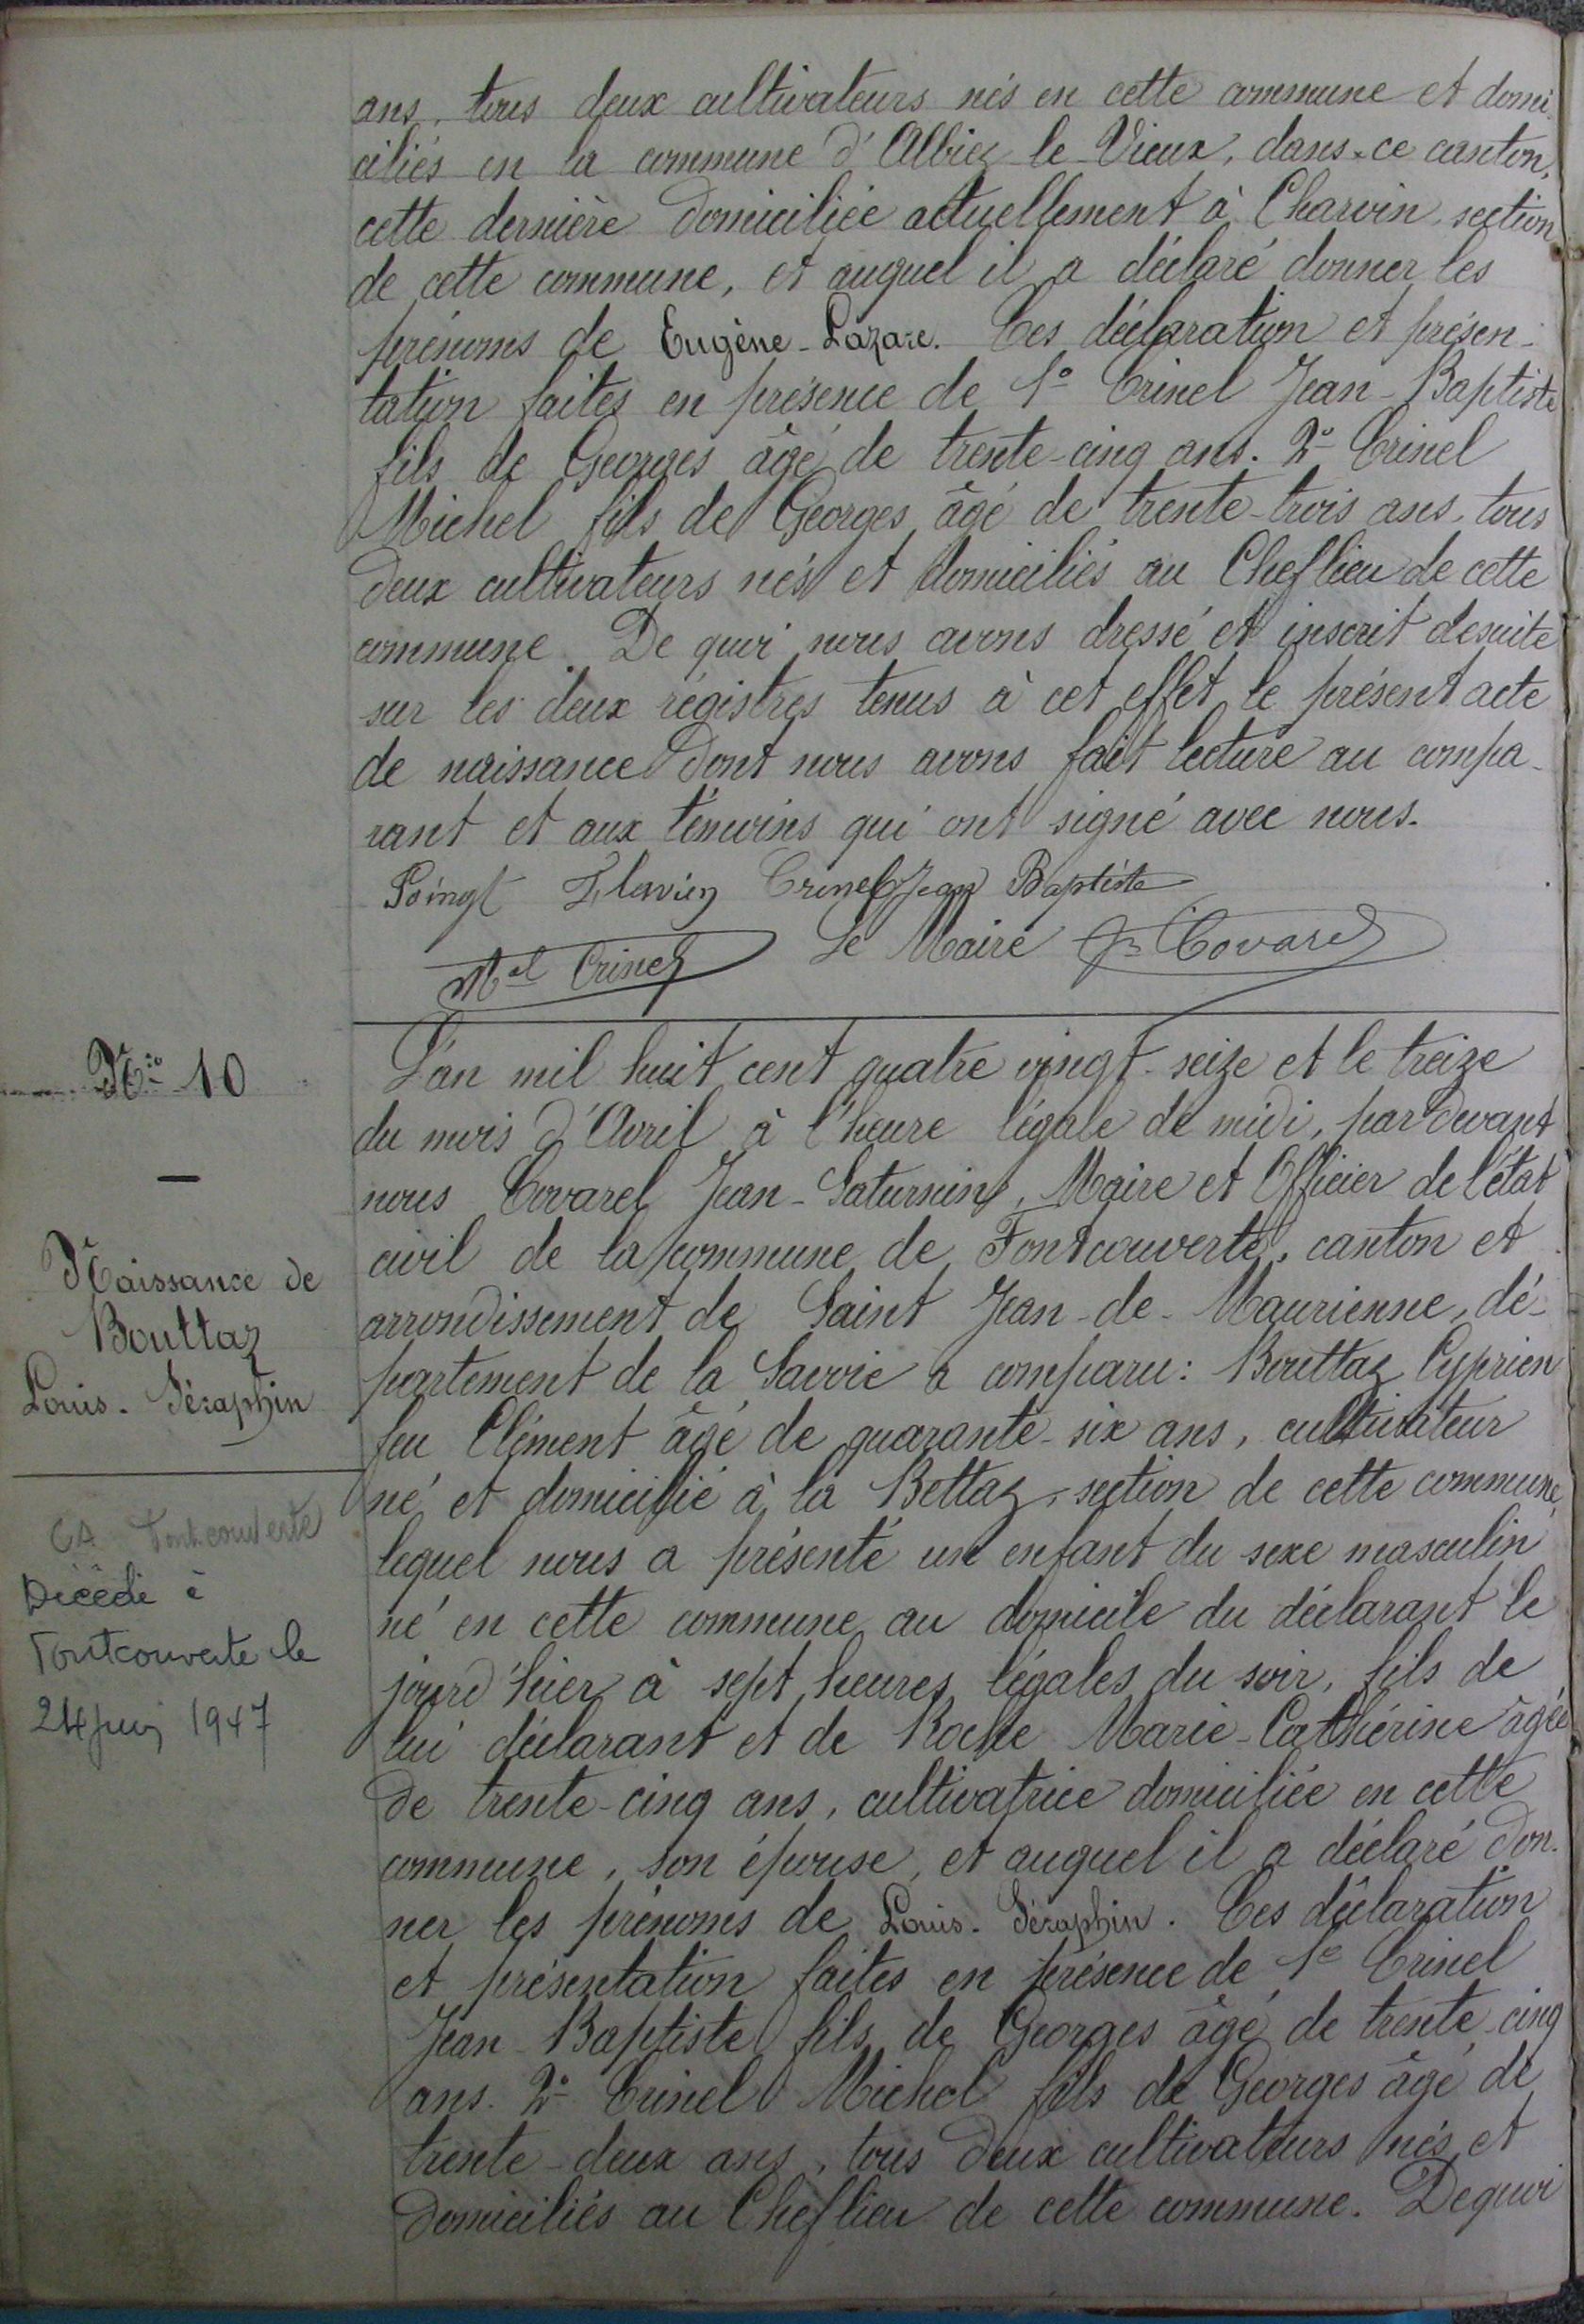 ans, tous deux cultivateurs nés en cette commune et domi-
ciliés en la commune d'Albiez le Vieux, dans ce canton,
cette dernière domiciliée actuellement à Charvin, section
de cette commune, et auquel il a déclaré donner les
prénoms de Eugène-Lazare. Ces déclaration et présen-
tation faites en présence de 1º Crinel Jean-Baptiste
fils de Georges âgé de trente-cinq ans. 2º Crinel
Michel fils de Georges âgé de trente-trois ans, tous
deux cultivateurs nés et domiciliés au Cheflieu de cette
commune. De quoi nous avons dressé et inscrit desuite
sur les deux régistres tenus à cet effet le présent acte
de naissance dont nous avons fait lecture au compa-
rant et aux témoins qui ont signé avec nous.
Poingt Flavien Crinel Jean Baptiste
Mel Crinel Le Maire Js Covarel
Nº 10
Naissance de
Bouttaz
Louis-Séraphin
Fontcouverte
Décédé à
Fontcouverte le
24 juin 1947
L'an mil huit cent quatre vingt-seize et le treize
du mois d'Avril à l'heure légale de midi, pardevant
nous Covarel Jean-Saturnin, Maire et Officier de l'état
civil de la commune de Fontcouverte, canton et
arrondissement de Saint Jean-de-Maurienne, dé-
partement de la Savoie a comparu: Bouttaz Cyprien
feu Clément âgé de quarante-six ans, cultivateur
né et domicilié à la Bettaz, section de cette commune,
lequel nous a présenté un enfant du sexe masculin
né en cette commune au domicile du déclarant le
jourd'hier à sept heures légales du soir, fils de
lui déclarant et de Roche Marie-Cathérine âgée
de trente-cinq ans, cultivatrice domiciliée en cette
commune, son épouse, et auquel il a déclaré don-
ner les prénoms de Louis-Séraphin. Ces déclaration
et présentation faites en présence de 1º Crinel
Jean-Baptiste fils de Georges âgé de trente-cinq
ans. 2º Crinel Michel fils de Georges âgé de
trente-deux ans, tous deux cultivateurs nés et
domiciliés au Cheflieu de cette commune. Dequoi